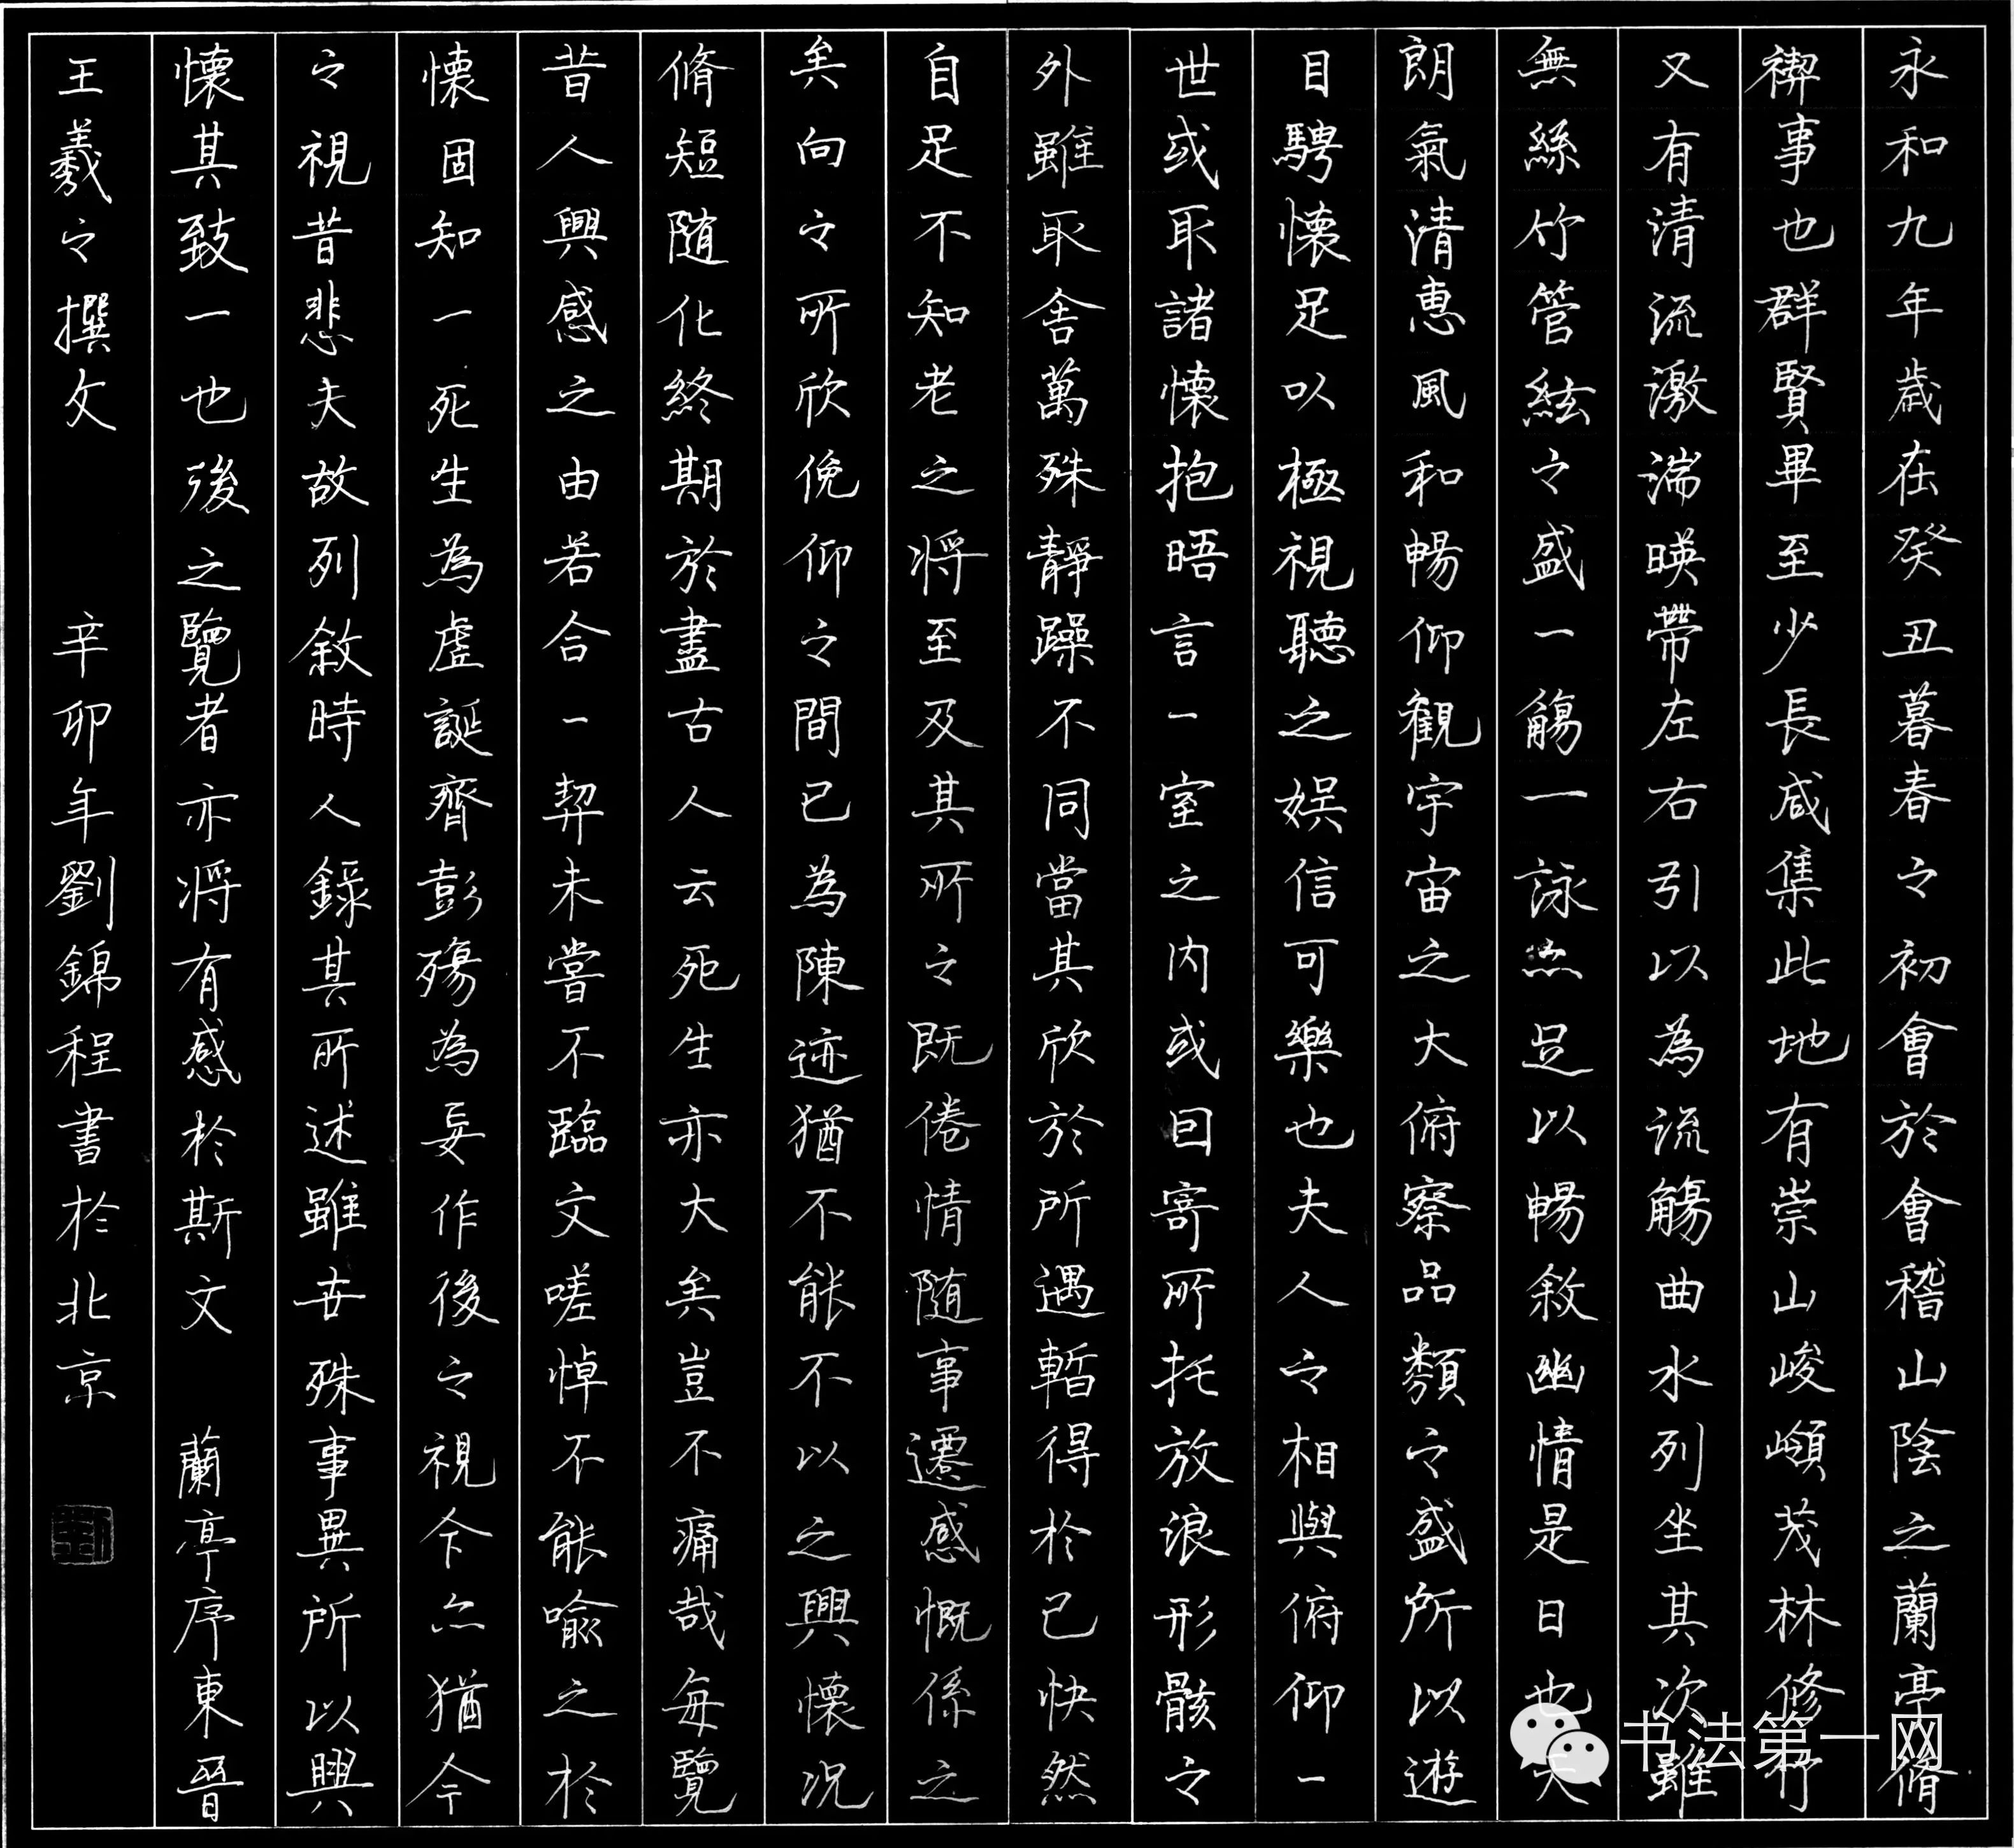 永和九年歲在癸丑暮春之初會於會稽山陰之蘭亭脩
禊事也群賢畢至少長咸集此地有崇山峻嶺茂林修竹
又有清流激湍暎帶左右引以為流觴曲水列坐其次雖
無絲竹管絃之盛一觴一詠亦足以暢敘幽情是日也天
朗氣清惠風和暢仰觀宇宙之大俯察品類之盛所以遊
目騁懷足以極視聽之娛信可樂也夫人之相與俯仰一
世或取諸懷抱晤言一室之內或因寄所托放浪形骸之
外雖取舍萬殊靜躁不同當其欣於所遇暫得於己快然
自足不知老之将至及其所之既倦情隨事遷感慨係之
矣向之所欣俛仰之間已為陳迹猶不能不以之興懷況
脩短隨化終期於盡古人云死生亦大矣豈不痛哉每覽
昔人興感之由若合一契未嘗不臨文嗟悼不能喻之於
懷固知一死生為虛誕齊彭殤為妄作後之視今亦猶今
之視昔悲夫故列敘時人錄其所述雖世殊事異所以興
懷其致一也後之覽者亦将有感於斯文 蘭亭序東晉
王羲之撰文 辛卯年劉錦程書於北京
书法第一网